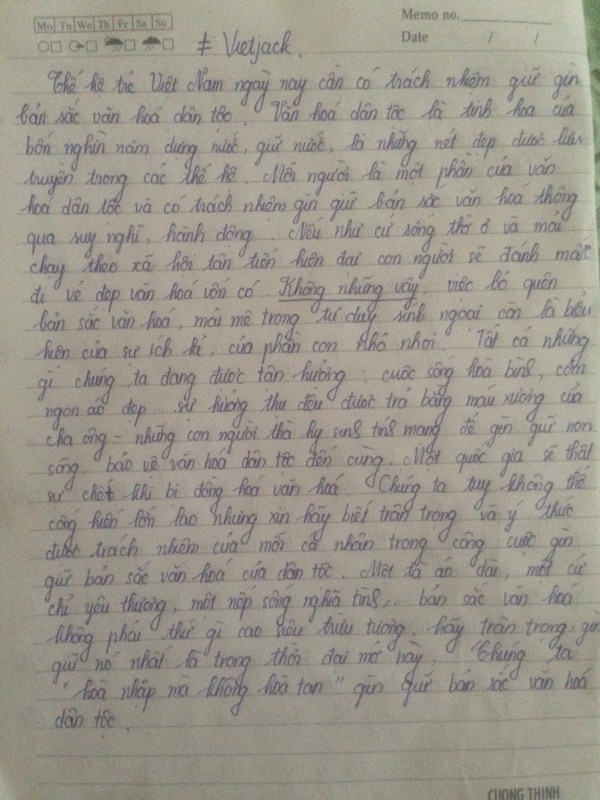 Mo Tu We Th Fr Sa Su
Memo no.
Date / /
# Vietjack.
Thế hệ trẻ Việt Nam ngày nay cần có trách nhiệm giữ gìn
bản sắc văn hoá dân tộc. Văn hoá dân tộc là tinh hoa của
bốn nghìn năm dựng nước, giữ nước, là những nét đẹp được lưu
truyền trong các thế hệ. Mỗi người là một phần của văn
hoá dân tộc và có trách nhiệm gìn giữ bản sắc văn hoá thông
qua suy nghĩ, hành động. Nếu như cứ sống thờ ơ và mải
chạy theo xã hội tân tiến hiện đại con người sẽ đánh mất
đi vẻ đẹp văn hoá vốn có. Không những vậy, việc bỏ quên
bản sắc văn hoá, mải mê trong tư duy sính ngoại còn là biểu
hiện của sự ích kỉ, của phần con nhỏ nhoi. Tất cả những
gì chúng ta đang được tận hưởng: cuộc sống hoà bình, cơm
ngon áo đẹp... sự hưởng thụ đều được trả bằng máu xương của
cha ông - những con người thà hy sinh tính mạng để gìn giữ non
sông, bảo vệ văn hoá dân tộc đến cùng. Một quốc gia sẽ thật
sự chết khi bị đồng hoá văn hoá. Chúng ta tuy không thể
cống hiến lớn lao nhưng xin hãy biết trân trọng và ý thức
được trách nhiệm của mỗi cá nhân trong công cuộc gìn
giữ bản sắc văn hoá của dân tộc. Một tà áo dài, một cử
chỉ yêu thương, một nếp sống nghĩa tình,.. bản sắc văn hoá
không phải thứ gì cao siêu trừu tượng, hãy trân trọng, gìn
giữ nó nhất là trong thời đại mở này. Chúng ta
"hoà nhập mà không hoà tan" gìn giữ bản sắc văn hoá
dân tộc.
CUONG THINH